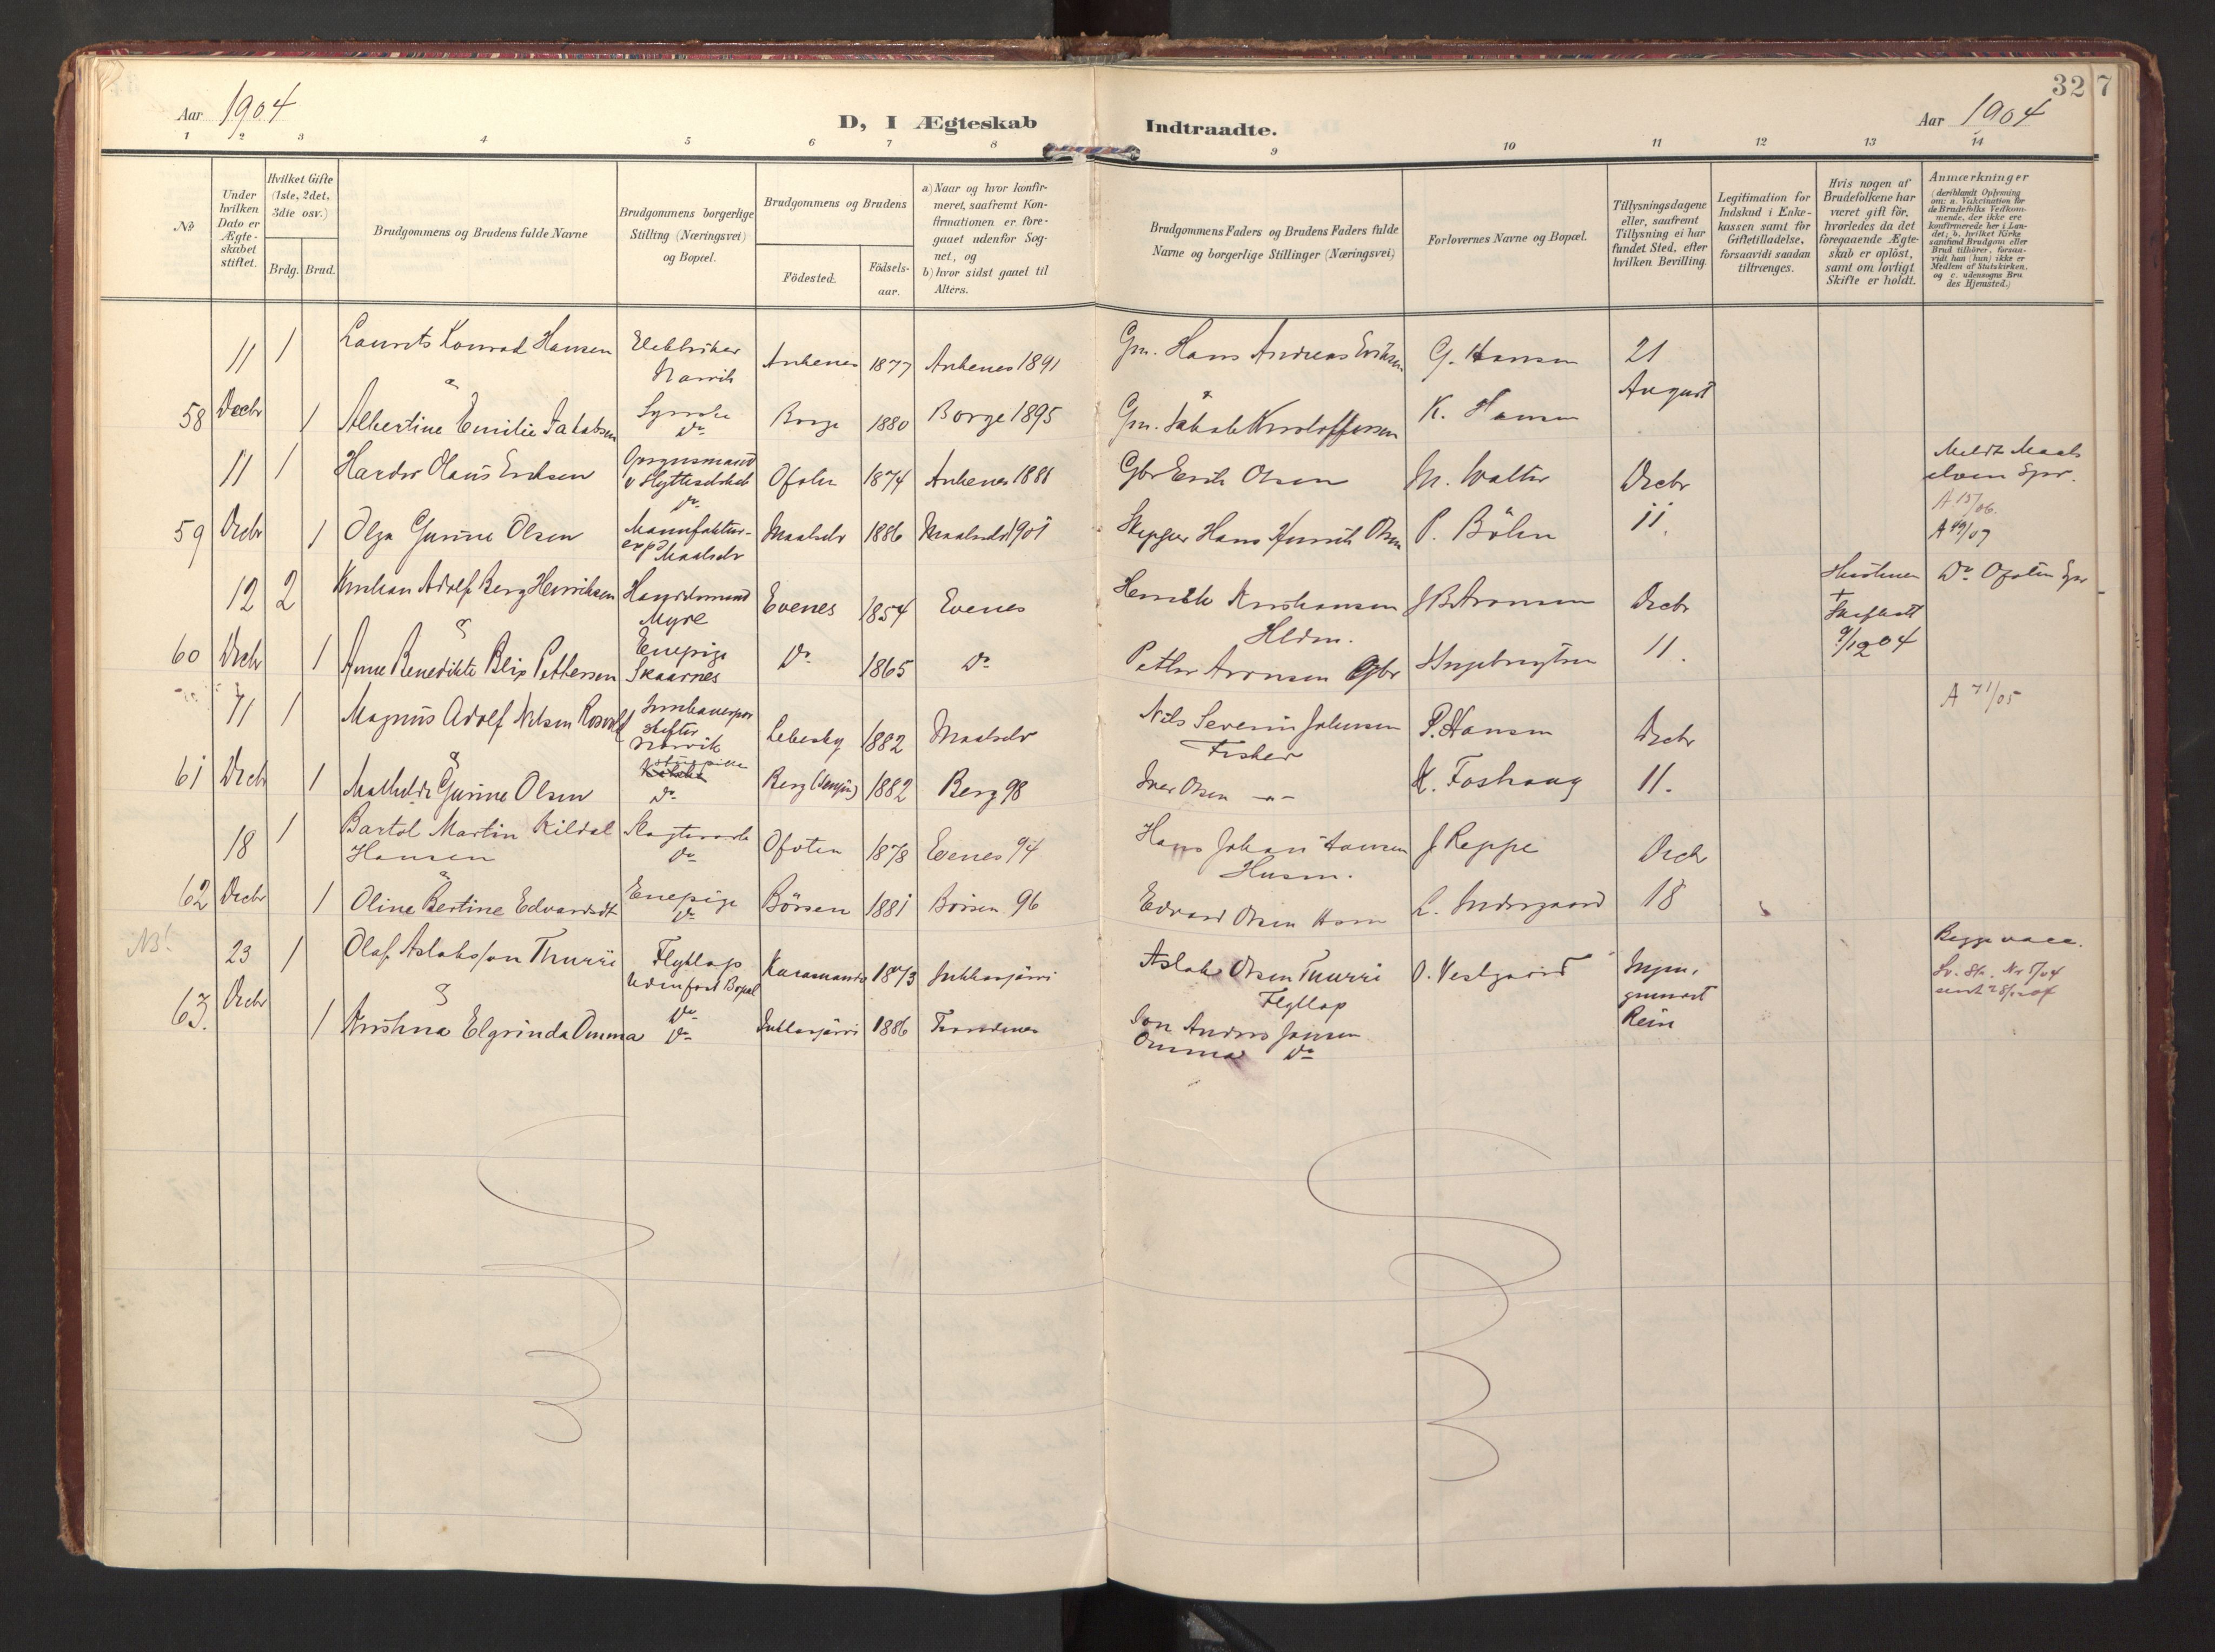 327
Aar 1904
D, I Ægteskab Indtraadte.
Aar 1904
1 2 3 4 5 6 7 8 9 10 11 12 13 14
No
Under hvilken Dato er Ægte-skabet stiftet.
Hvilket Gifte (1ste, 2det, 3die osv.)
Brdg. Brud.
Brudgommens og Brudens fulde Navne
Brudgommens borgerlige Stilling (Næringsvei) og Bopæl.
Brudgommens og Brudens
Födested.
Födsels-aar.
a) Naar og hvor konfir-meret, saafremt Kon-firmationen er fore-gaaet udenfor Sog-net, og
b) hvor sidst gaaet til Alters.
Brudgommens Faders og Brudens Faders fulde Navne og borgerlige Stillinger (Næringsvei)
Forlovernes Navne og Bopæl.
Tillysningsdagene eller, saafremt Tillysning ei har fundet Sted, efter hvilken Bevilling.
Legitimation for Indskud i Enke-kassen samt for Giftetilladelse, forsaavidt saadan tiltrænges.
Hvis nogen af Brudefolkene har været gift för, hvorledes da det foregaaende Ægte-skab er oplöst, samt om lovligt Skifte er holdt.
Anmærkninger
(deriblandt Oplysning om: a. Vakcination for de Brudefolks Vedkom-mende, der ikke ere konfirmerede her i Lan-det; b. hvilket Kirke-samfund Brudgom eller Brud tilhörer, forsaa-vidt han (hun) ikke er Medlem af Statskirken, og c. udensogns Bru-des Hjemsted.)
11 1 Laurits Konrad Hansen Elektriker Narvik Ankenes 1877 Ankenes 1891 Gm. Hans Andreas Eriksen G. Hansen 21 August
58 Decbr 1 Albertine Emilie Jakobsen Syerske Do Borge 1880 Borge 1895 Gm. Jakob Kristoffersen K. Hansen
11 1 Harder Olaus Eriksen Ofoten 1874 Ankenes 1888 Gbr Erik Olsen M. Walter Decbr
59 Decbr 1 Olga Gurine Olsen Manufaktur- Maalselv Maalselv 1886 Maalselv 1901 Hans Henrik Olsen P. Böhn 11.
A 13/06.
A 49/07
12 2 Kristian Adolf Berg Henriksen Handelsmand Myre Evenes 1854 Evenes Henrik Kristiansen Hldm. J B Aronsen Decbr Hustruen + Skiftet 9/12 04 Do Ofoten Spr
60 Decbr 1 Anne Benedikte Blix Pettersen Enepige Skaarnes Do 1865 Do Petter Aronsen Gbr Ingebrigtsen 11.
11 1 Magnus Adolf Nilsen Narvik Lebesby 1882 Maalselv Nils Severin Johnsen Fisker P. Hansen Decbr A 71/05
61 Decbr 1 Mathilde Gurine Olsen Do Berg (Senjen) 1882 Berg 98 Iver Olsen -"- K. Foshaug 11.
18 1 Bartol Martin Kildal Hansen Do Ofoten 1878 Evenes 94 Hans Johan Hansen Husm. J Reppe Decbr
62 Decbr 1 Oline Bertine Edvardsdt Enepige Do Börsen 1881 Börsen 96 Edvard Olsen L. Indergaard 18
NB!
23 1 Olaf Aslaksson Thuuri Flytlap Uden fast Bopæl 1873 Jukkasjärvi Aslak Olsen Thuuri Flytlap O. Vestgaard Begge vacc.
63. Decbr 1 Kristina Elgrinda Omma Do Do Jukkasjärvi 1886 Jon Anders Jonsen Omma Do